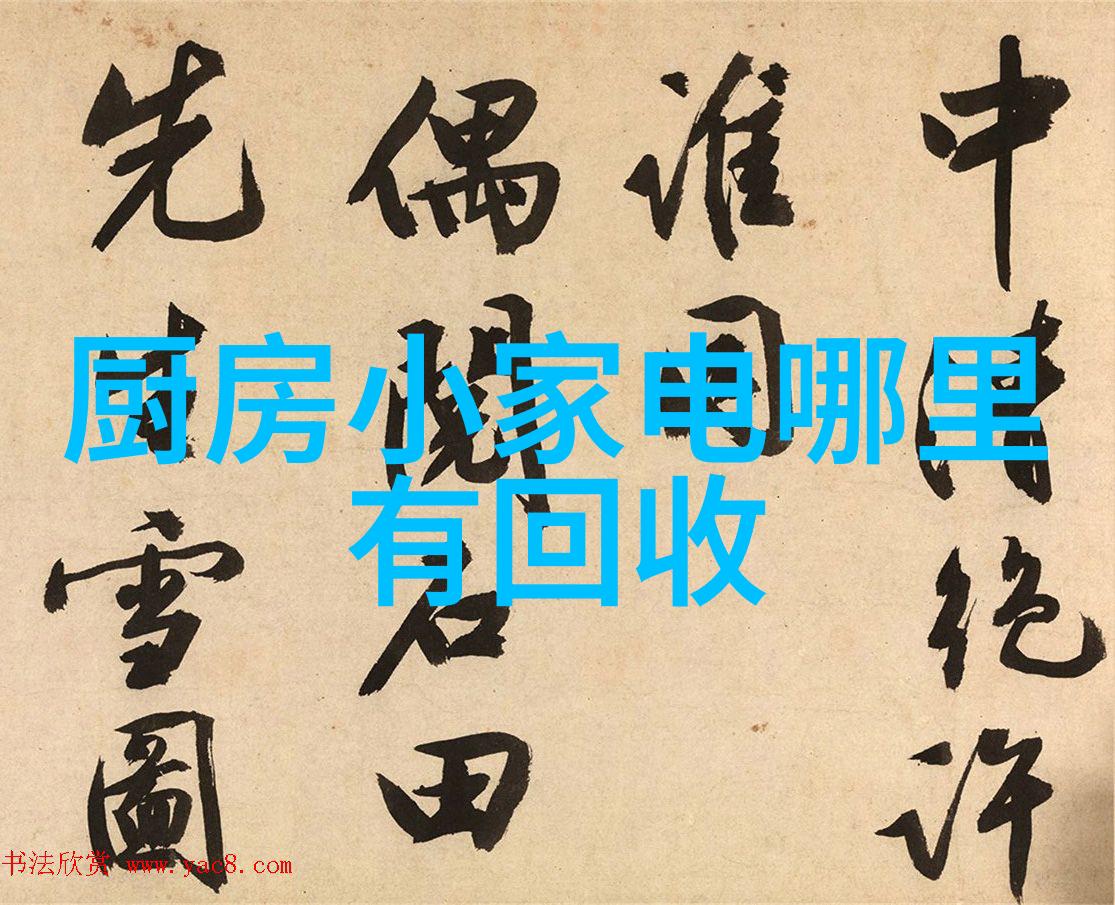 厨房小家电哪里
有回收
中清絕許
誰同
偶閱石田
先生雪圖
书法欣赏 www.yac8.com